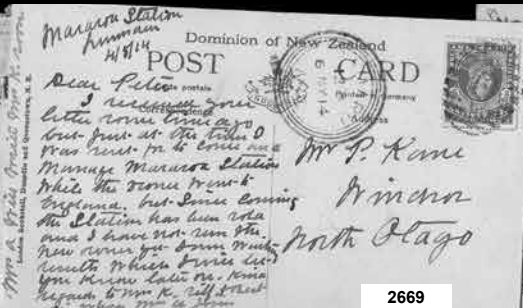 Mararoa Station
Lumsden
4/5/14
Dominion of New Zealand
POST CARD
Printed in Germany
Address
Dear Peter
I received your
letter some time ago
but just at the time I
was sent for to come and
Manage Mararoa Station
While the owner went to
England. but Since Coming
the Station has been sold
and I have not seen the
new owner yet
results which I will let
you Know later on. Kind
regards to Mrs K.
Mr P. Kane
Windsor
North Otago
London Bookstall, Dunedin and Queenstown, N.Z.
2669